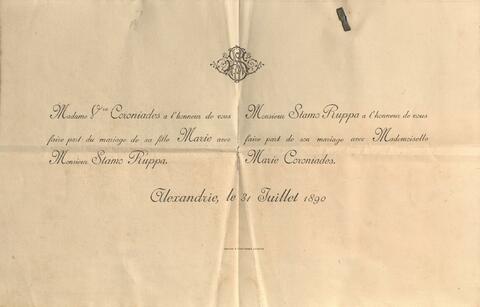 Madame Vve Coroniades a l'honneur de vous
faire part du mariage de sa fille Marie avec
Monsieur Stamo Ruppa.
Monsieur Stamo Ruppa a l'honneur de vous
faire part de son mariage avec Mademoiselle
Marie Coroniades.
Alexandrie, le 31 Juillet 1890